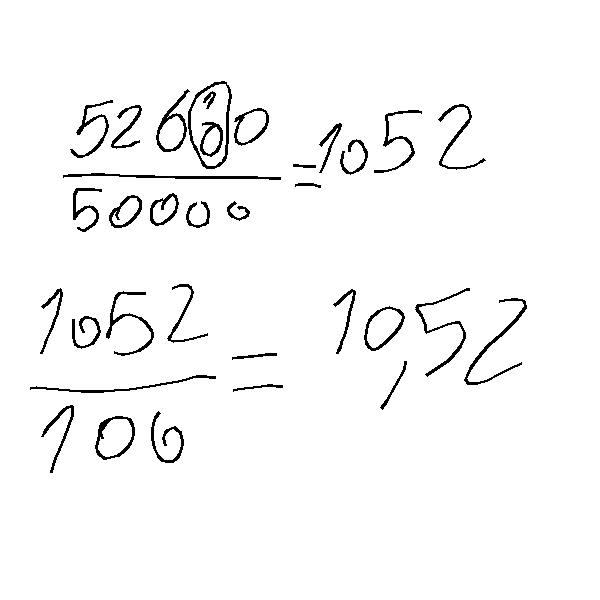 52600
50000
=1052
1052
100
= 10,52